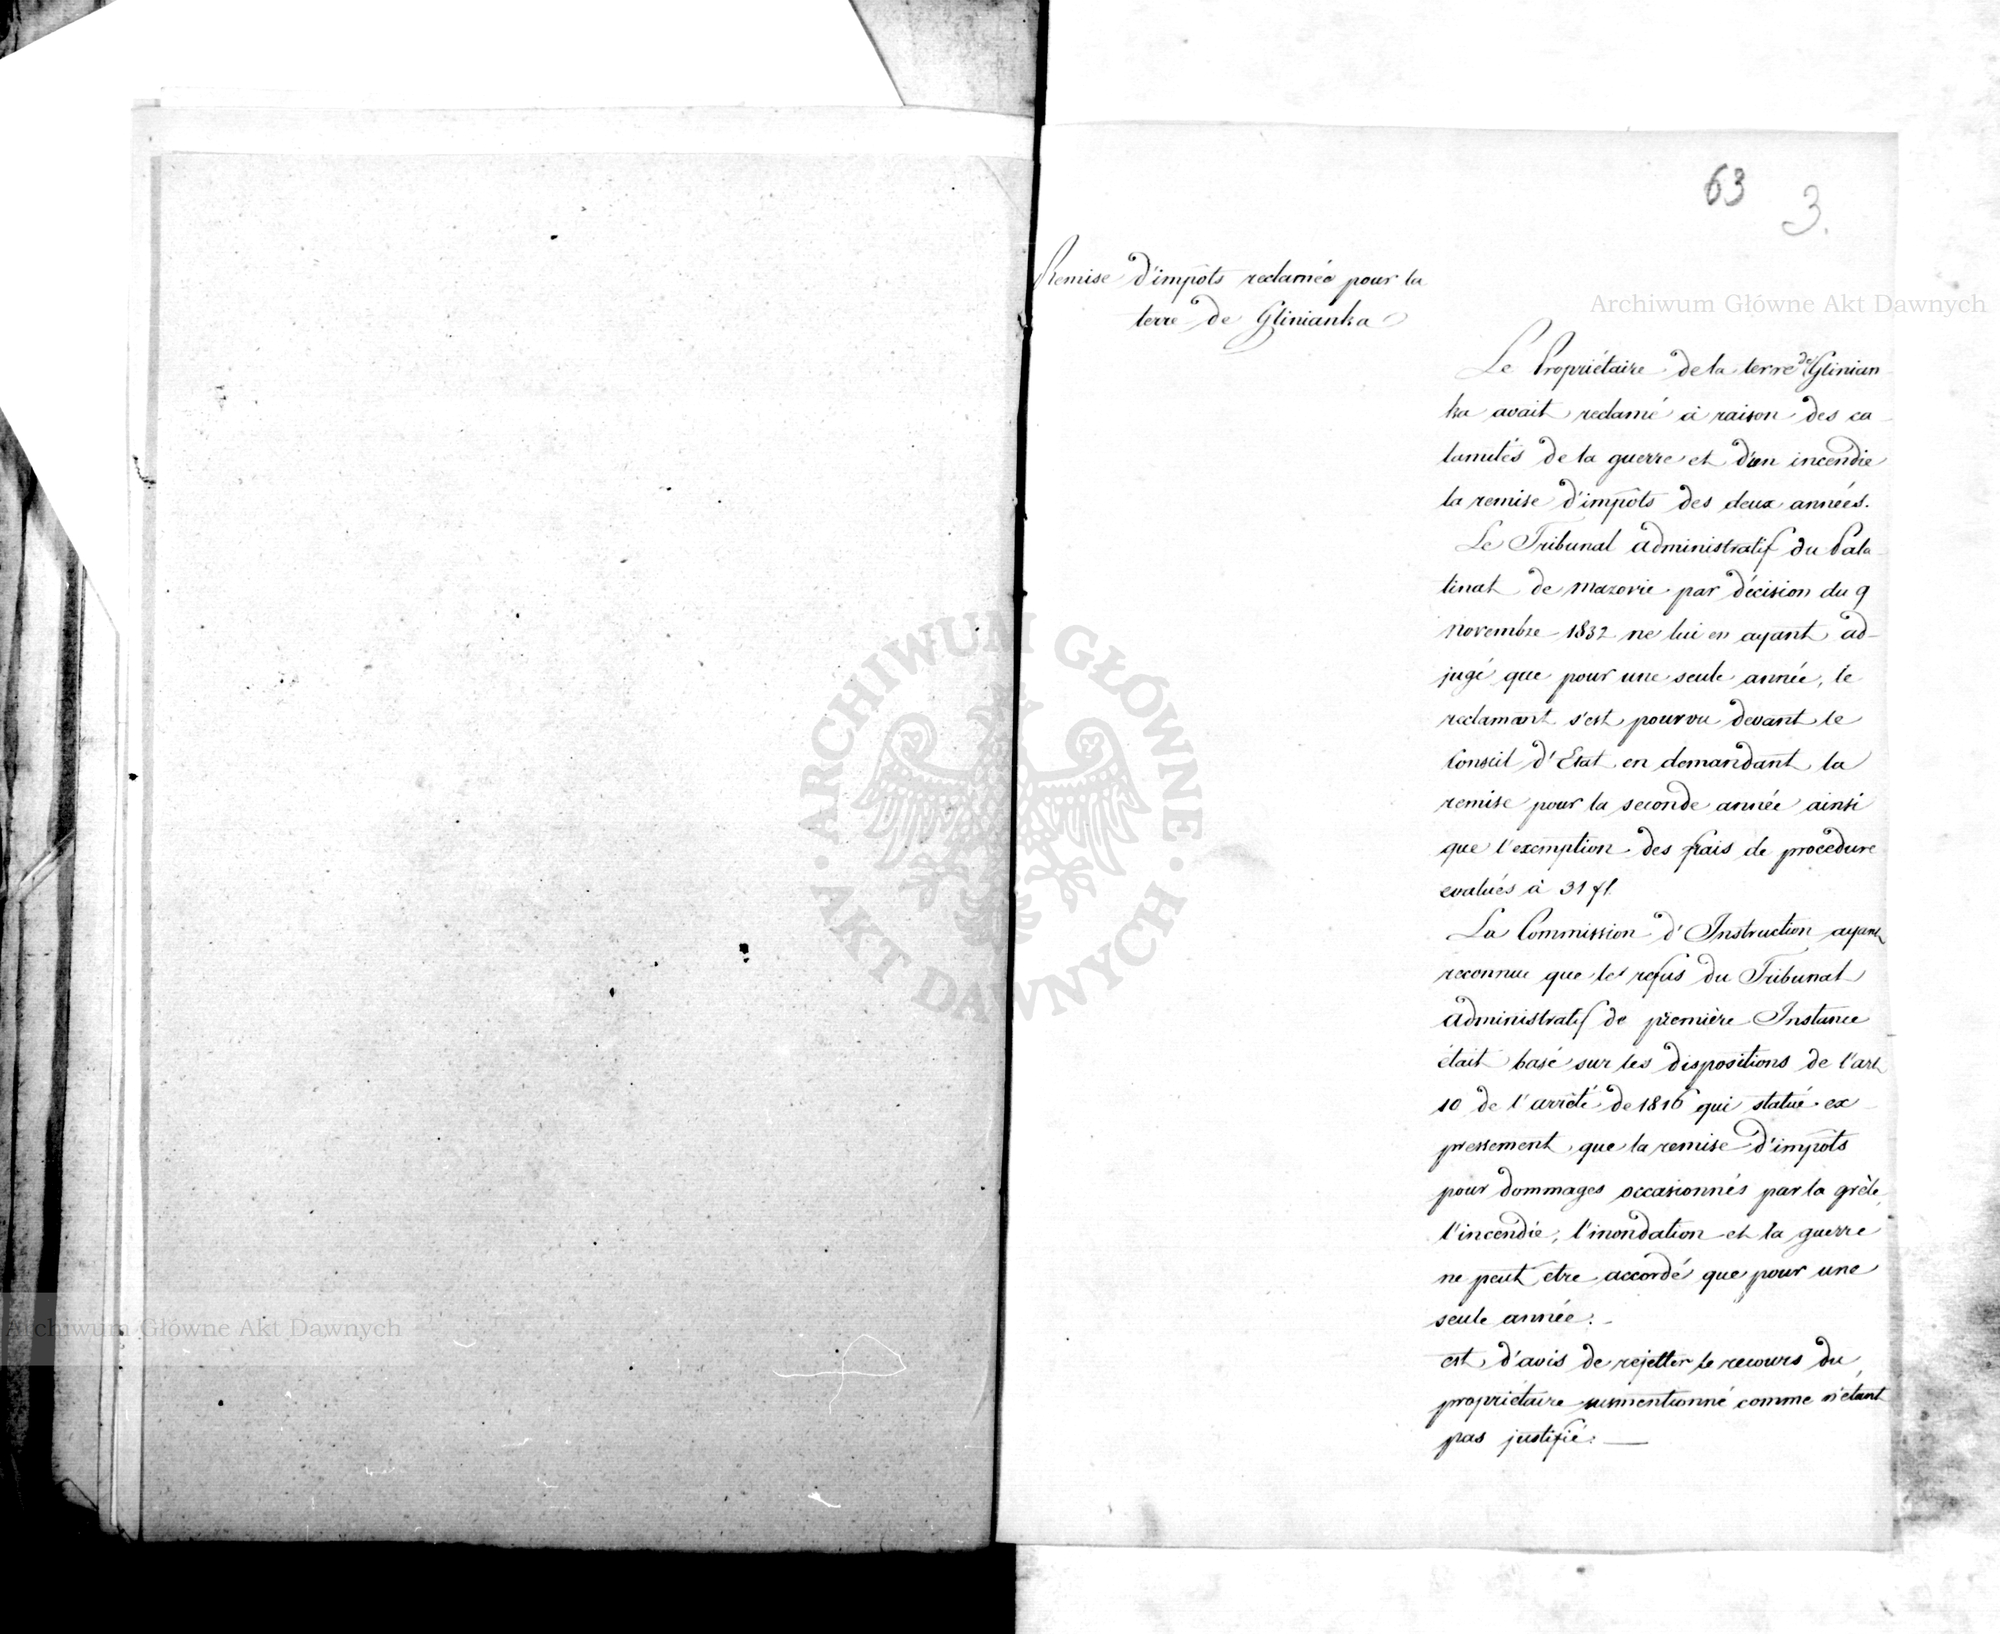 63
3.
Archiwum Główne Akt Dawnych
Remise d'impôts reclamée pour la
terre de Glinianka
Le Propriétaire de la terre de Glinian
ka avait reclamé à raison des ca
lamités de la guerre et d'un incendie
la remise d'impôts des deux années.
Le Tribunal administratif du Pala
tinat de Mazovie par décision du 9
novembre 1832 ne lui en ayant ad-
jugé que pour une seule année, le
reclamant s'est pourvu devant le
Conseil d'Etat en demandant la
remise pour la seconde année ainsi
que l'exemption des frais de procedure
evalués à 31 fl.
La Commission d'Instruction ayant
reconnue que les refus du Tribunal
administratif de première Instance
était basé sur les dispositions de l'art
10 de l'arrêté de 1816 qui statué ex
pressement que la remise d'impôts
pour dommages occasionnés par la grêle,
l'incendie, l'inondation et la guerre
ne peut etre accordé que pour une
seule année. -
est d'avis de rejetter le recours du
propriétaire susmentionné comme n'étant
pas justifié. —
ARCHIWUM GŁÓWNE
AKT DAWNYCH
Archiwum Główne Akt Dawnych